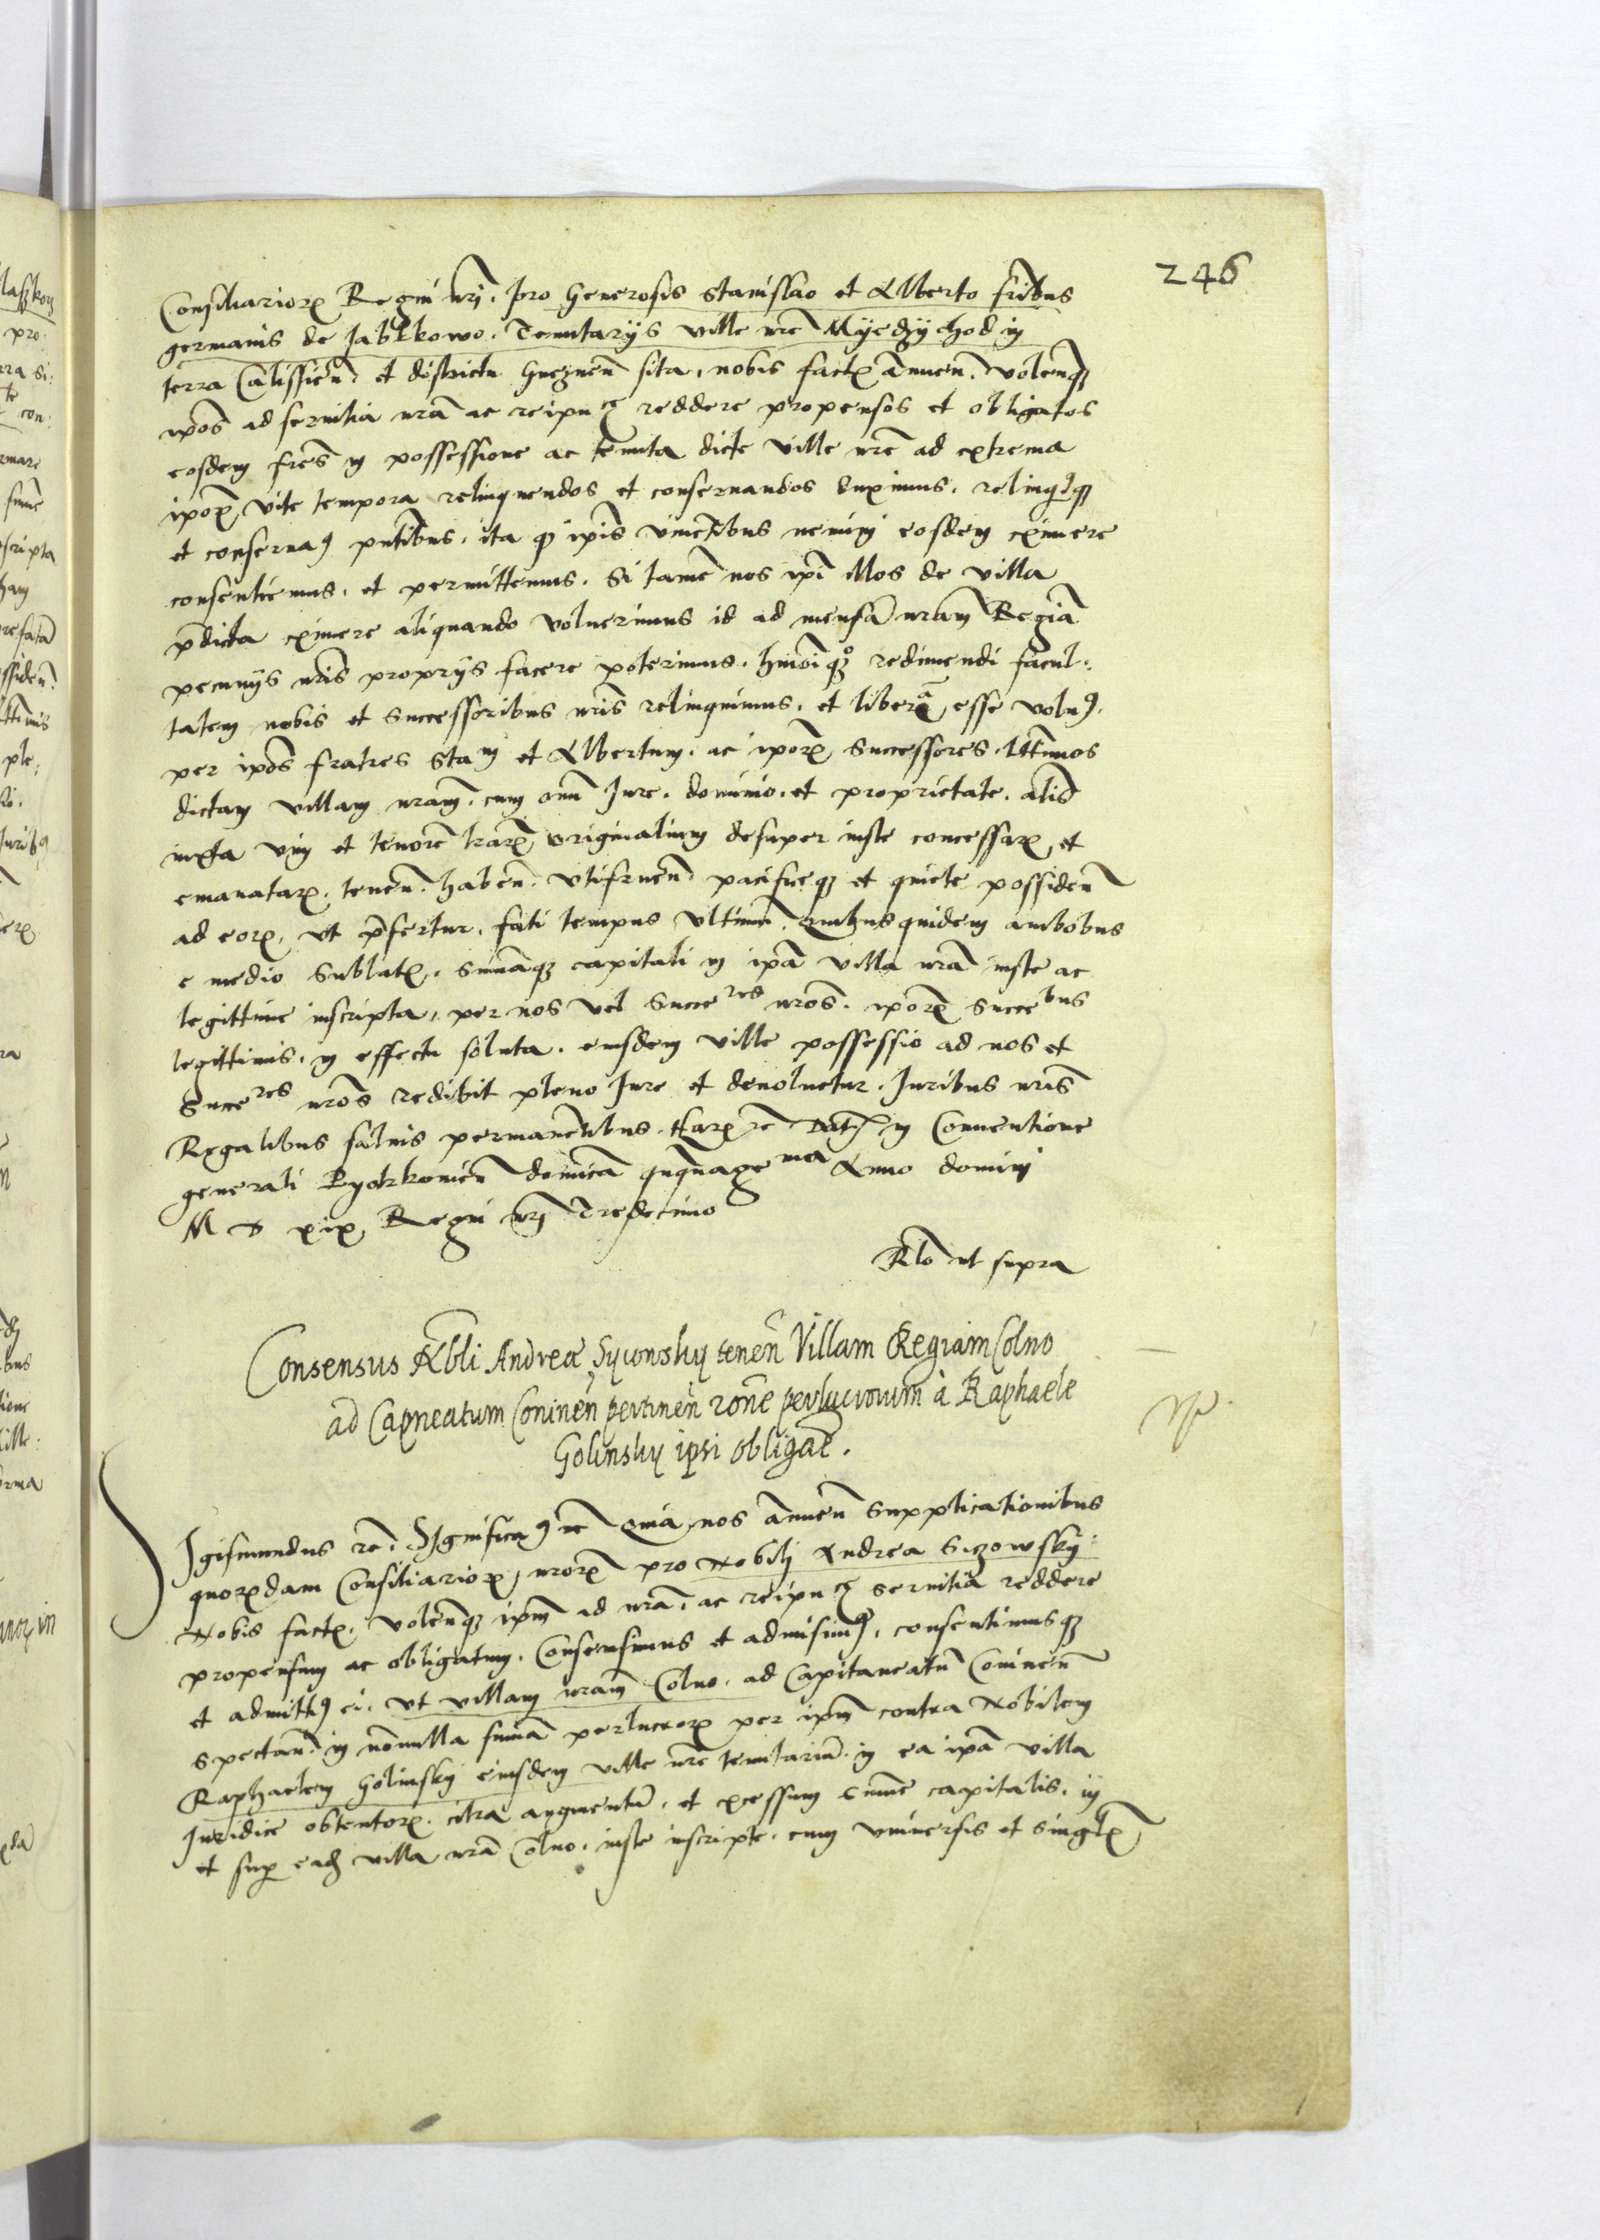 246
Consiliarioꝝ Regni nrĩ. pro Generosis Stanislao et Alberto frĩbus
germanis de Jablkowo. Tenutarijs ville nrẽ Myedzychod in
terra Calissieñ. et districtu Gnezneñ sita, nobis factꝭ ãnueñ. volenꝗ
ip̃os ad seruitia nrã ac reipuce reddere propensos et obligatos
eosdem frẽs in possessione ac tenuta dicte ville nrẽ ad extrema
ip̃oꝝ vite tempora relinquendos et conseruandos duximus. relinqiꝰꝗ
et conseruaꝰ pñtibus. ita ꝙ ip̃is viuẽtibus nemini eosdem eximere
consentiemus. et permittemus. Si tamẽ nos ip̃i illos de villa
p̃dicta eximere aliquando voluerimus id ad mensã nram Regiã
pecunijs nrĩs proprijs facere poterimus. hmõi ꝗ redimendi facul-
tatem nobis et Successoribus nrĩs relinquimus. et liberã esse voluꝰ.
per ip̃os fratres Stam et Albertum. ac ip̃oꝝ Successores. lttimos
dictam villam nram. cum om̃i Jure. dominio. et proprietate. aliis
iuxta vim et tenorẽ lraꝝ originalium desuper iuste concessaꝝ et
emanataꝝ. teneñ. habeñ. vtifrueñ. pacificeꝗ et quiete possideñ
ad eoꝝ, vt p̃fertur. fati tempus vltimũ. Quibusquidem ambobus
e medio sublatꝭ. Sum̃aꝗ capitali in ip̃a villa nrã iuste ac
legittime inscripta, per nos vel Succeres nros. ip̃oꝝ Succebus
legittimis. in effectu soluta. eiusdem ville possessio ad nos et
Succeres nros redibit pleno Jure et deuoluetur. Juribus nrĩs
Regalibus saluis permanẽtibus. Haꝝ rẽ Datꝭ in Conuentione
generali Pyotrkouieñ dom̃ica quĩquagema Anno domini
M D xix Regni nrĩ Tredecimo
Rlõ ut supra
Consensus Nbli Andreæ Syconsky teneñ Villam Regiam Colno
ad Capneatum Conineñ pertineñ rõne perlucrorum à Raphaele
Golinsky ipsi obligatæ.
Sigismundus rẽ. Significaꝰ rẽ Quia nos ãnueñ Supplicationibus
quoꝝdam Consiliarioꝝ nroꝝ pro Nobili Andrea Siczowsky
Nobis factꝭ. volenꝗ ip̃m ad nrã. ac reipuce seruitia reddere
propensum ac obligatum. Consensimus et admisimꝰ, consentimusꝗ
et admittiꝰ ei. vt villam nram Colno. ad Capitaneatũ Conineñ
Spectañ. in nõnulla sum̃a perlucroꝝ per ip̃m contra Nobilem
Raphaelem Golinsky eiusdem ville nrẽ tenutariũ. in ea ip̃a villa
Juridice obtentoꝝ. citra augmentũ. et excessum Sum̃e capitalis. in
et sup eadẽ villa nrã Colno. iuste inscripte. cum vniuersis et singlꝭ